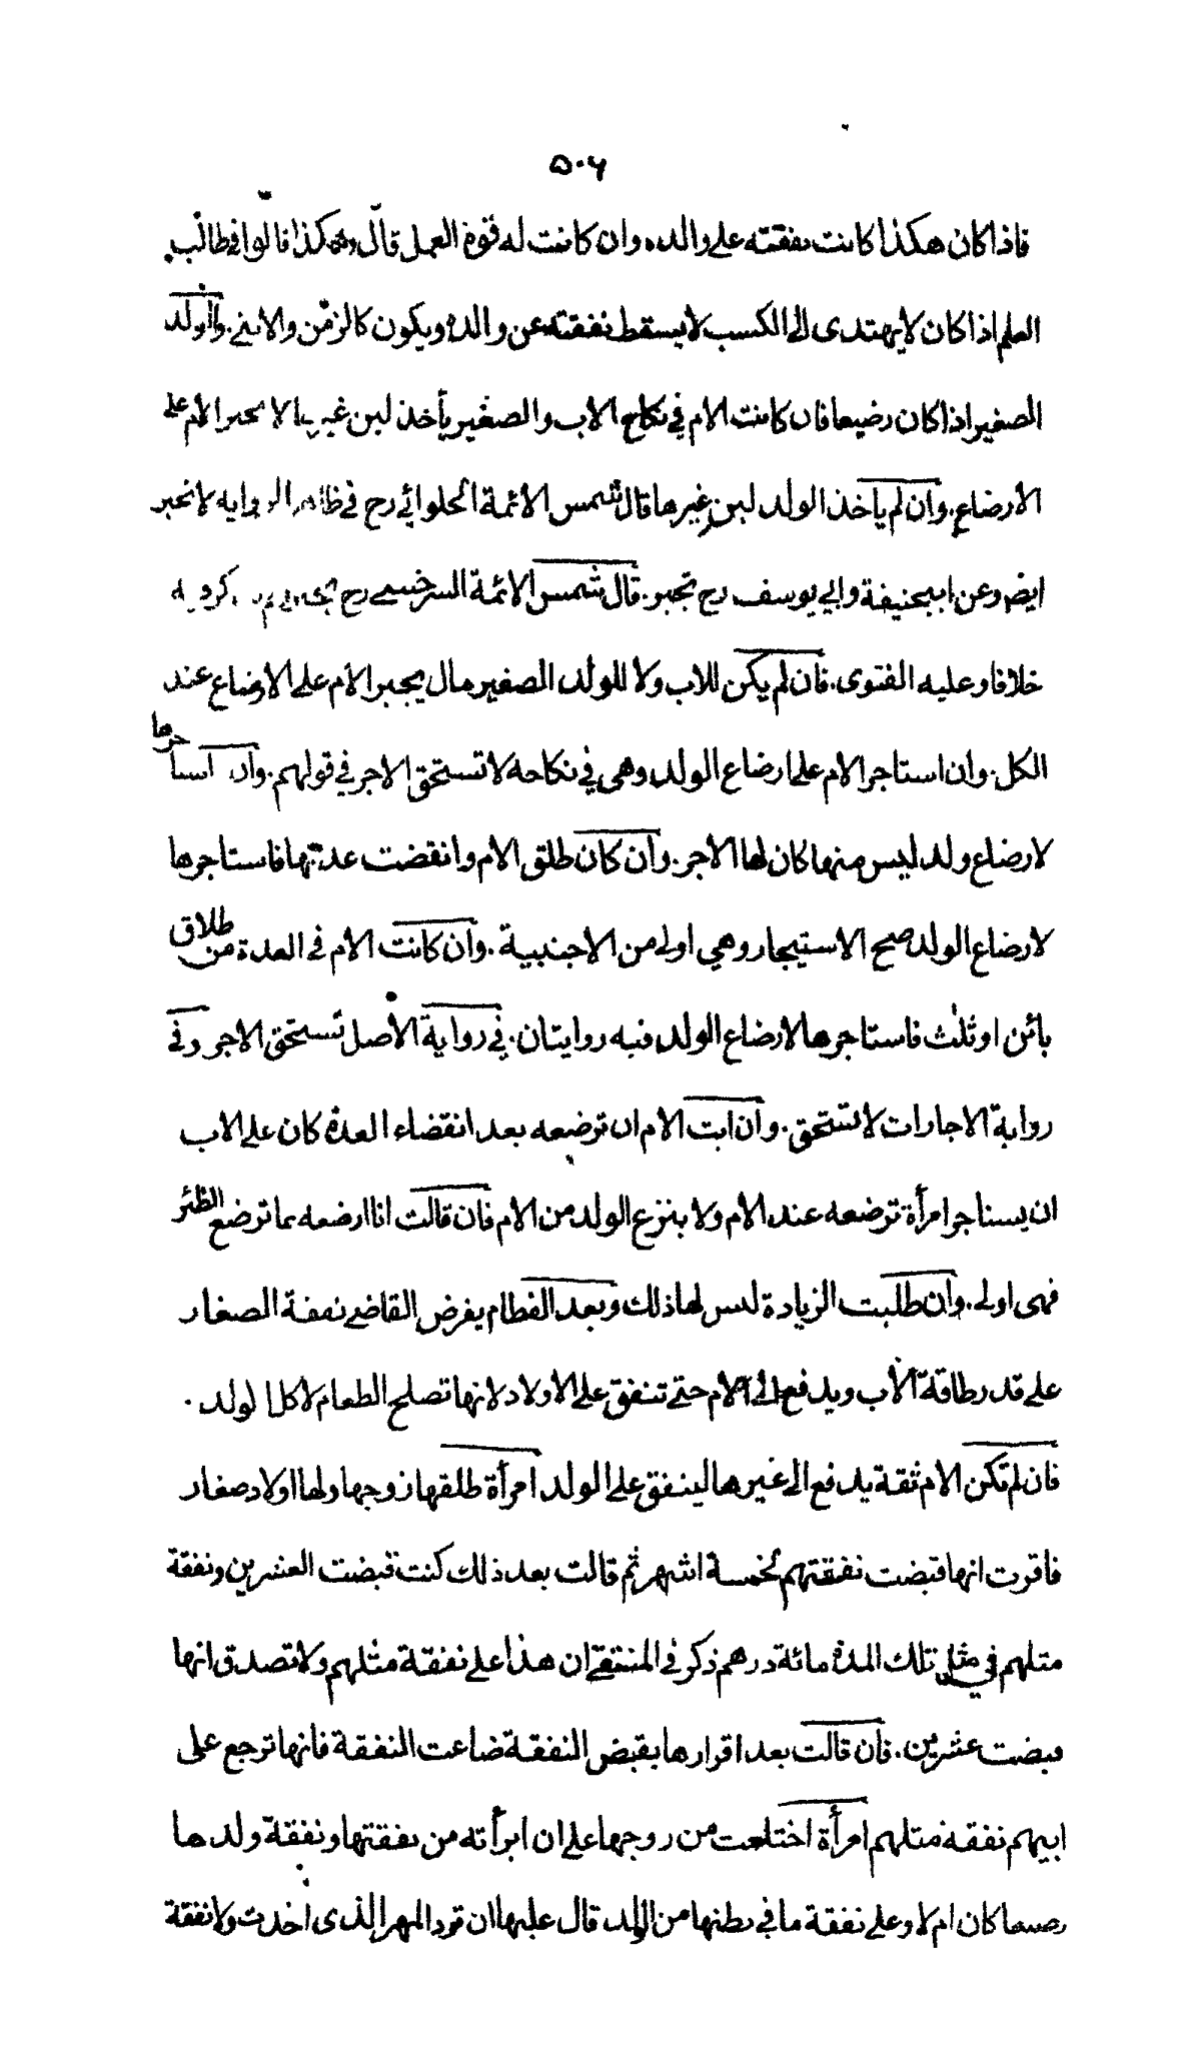 ۵۰۶
فاذا كان هكذا كانت نفقته على والده وان كانت له قوة العمل قال وهكذا قالوا في طالب
العلم اذا كان لا يهتدى الى الكسب لا يسقط نفقته عن والده ويكون كالزمن والانثى. والولد
الصغير اذا كان رضيعا فان كانت الام في نكاح الاب والصغير يأخذ لبن غيرها لا تجبر الام على
الأرضاع. وان لم يأخذ الولد لبن غيرها قال شمس الأئمة الحلوائي رح في ظاهر الرواية لا تجبر
ايضا وعن ابيحنيفة وابي يوسف رح تجبر. قال شمس الائمة السرخسي رح تجبر
خلافا وعليه الفتوى. فان لم يكن للاب ولا للولد الصغير مال يجبر الام على الارضاع عند
الكل. وان استاجر الام على ارضاع الولد وهي في نكاحه لا تستحق الاجر في قولهم. وان استاجرها
لارضاع ولد ليس منها كان لها الاجر. وان كان طلق الام وانقضت عدتها فاستاجرها
لارضاع الولد صح الاستيجار وهي اولى من الاجنبية. وان كانت الام في العدة من طلاق
بائن او ثلث فاستاجرها لارضاع الولد فيه روايتان. في رواية الأصل تستحق الاجر وفي
رواية الاجارات لا تستحق. وان ابت الام ان ترضعه بعد انقضاء العدة كان على الاب
ان يستاجر امرأة ترضعه عند الام ولا ينزع الولد من الام فان قالت انا ارضعه بما ترضع الظئر
فهى اولى. وان طلبت الزيادة ليس لها ذلك وبعد الفطام يفرض القاضي نفقة الصغار
على قدر طاقة الأب ويدفع الى الام حتى تنفق على الاولاد لانها تصلح الطعام لاكل الولد.
فان لم تكن الام ثقة يدفع الى غيرها لينفق على الولد امرأة طلقها زوجها ولها اولاد صغار
فاقرت انها قبضت نفقتهم لخمسة اشهر ثم قالت بعد ذلك كنت قبضت العشرين ونفقة
مثلهم في مثل تلك المدة مائة درهم ذكر في المنتقى ان هذا على نفقة مثلهم ولا تصدق انها
قبضت عشرين. فان قالت بعد اقرارها بقبض النفقة ضاعت النفقة فانها ترجع على
ابيهم نفقة مثلهم امرأة اختلعت من زوجها على ان ابرأته من نفقتها ونفقة ولدها
رضيعا كان ام لا وعلى نفقة ما في بطنها من الولد قال عليها ان ترد المهر الذى اخذت ولا نفقة